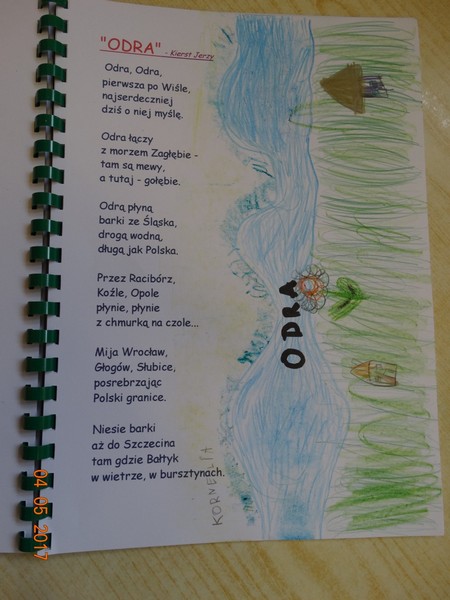 "ODRA" - Kierst Jerzy
Odra, Odra,
pierwsza po Wiśle,
najserdeczniej
dziś o niej myślę.
Odra łączy
z morzem Zagłębie -
tam są mewy,
a tutaj - gołębie.
Odrą płyną
barki ze Śląska,
drogą wodną,
długą jak Polska.
Przez Racibórz,
Koźle, Opole
płynie, płynie
z chmurką na czole...
Mija Wrocław,
Głogów, Słubice,
posrebrzając
Polski granice.
Niesie barki
aż do Szczecina
tam gdzie Bałtyk
w wietrze, w bursztynach.
ODRA
04-05-2017